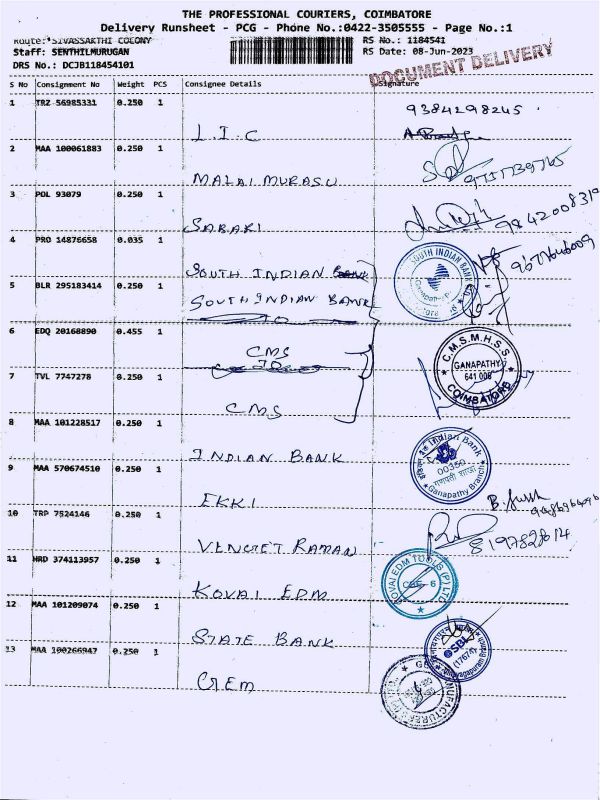 THE PROFESSIONAL COURIERS, COIMBATORE
Delivery Runsheet - PCG - Phone No.:0422-3505555 - Page No.:1
Route: SIVASSAKTHI COLONY
RS No.: 1184541
Staff: SENTHILMURUGAN
RS Date: 08-Jun-2023
DRS No.: DCJB118454101
DOCUMENT DELIVERY
S No Consignment No Weight PCS Consignee Details Signature
1 TRZ 56985331 0.250 1
9384298245
L.I.C
2 MAA 100061883 0.250 1
MALAI MURASU
3 POL 93079 0.250 1
SABAKI
4 PRO 14876658 0.035 1
9677646009
SOUTH INDIAN BANK
SOUTH INDIAN BANK
5 BLR 295183414 0.250 1
SOUTH INDIAN BANK
6 EDQ 20168890 0.455 1
CMS
C.M.S.M.H.S.S
GANAPATHY
641 006
COIMBATORE
7 TVL 7747278 0.250 1
CMS
8 MAA 101228517 0.250 1
INDIAN BANK
Indian Bank
Ganapathy Branch
9 MAA 570674510 0.250 1
EKKI
10 TRP 7524146 0.250 1
VENGET RAMAN
11 HRD 374113957 0.250 1
KOVAI EDM
KOVAI EDM TOOLS (P) LTD
CBE - 6
12 MAA 101209074 0.250 1
STATE BANK
SBI
13 MAA 100266947 0.250 1
GEM